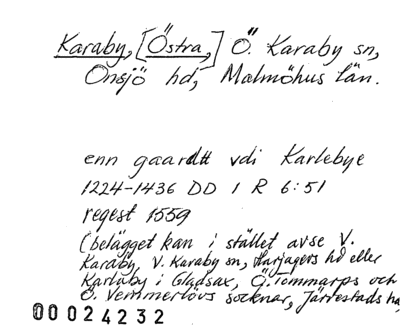 Karaby, [Östra,] Ö. Karaby sn,
Onsjö hd, Malmöhus län.
enn gaardtt vdi Karlebye
1224-1436 DD 1 R 6:51
regest 1559
(belägget kan i stället avse V.
Karaby, V. Karaby sn, Harjagers hd eller
Karlaby i Gladsax, Ö. Tommarps och
Ö. Vemmerlövs socknar, Järrestads hd,
00024232